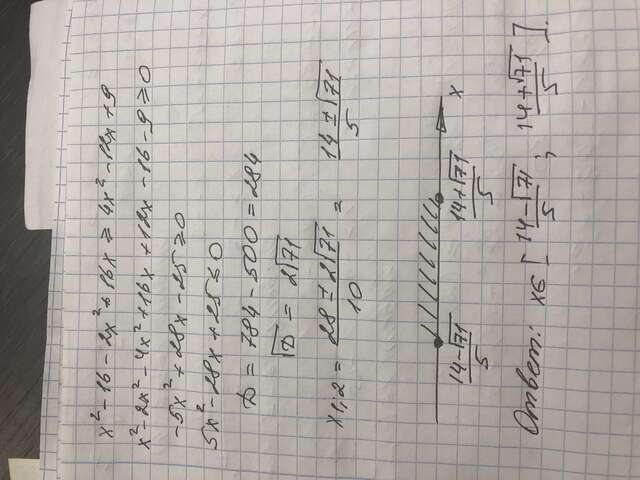 x² - 16 - 2x² + 16x ≥ 4x² - 12x + 9
x² - 2x² - 4x² + 16x + 12x - 16 - 9 ≥ 0
-5x² + 28x - 25 ≥ 0
5x² - 28x + 25 ≤ 0
D = 784 - 500 = 284
√D = 2√71
x1;2 = (28 ± 2√71)/10 = (14 ± √71)/5
(14 - √71)/5 (14 + √71)/5 x
Ответ: x ∈ [(14 - √71)/5 ; (14 + √71)/5].